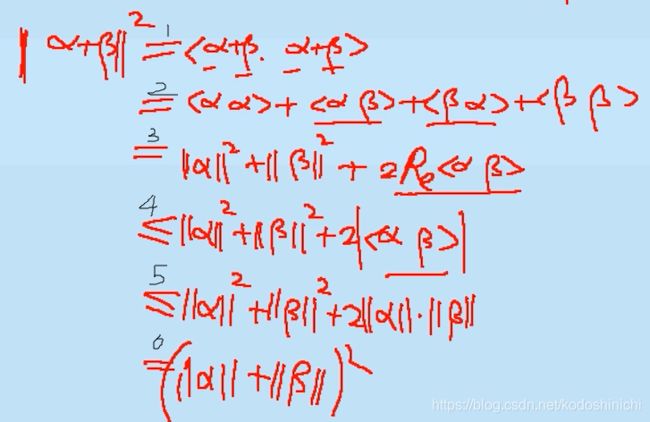 ‖α+β‖² =¹ <α+β. α+β>
=² <α α> + <α β> + <β α> + <β β>
=³ ‖α‖² + ‖β‖² + 2Re<α β>
≤⁴ ‖α‖² + ‖β‖² + 2|<α β>|
≤⁵ ‖α‖² + ‖β‖² + 2‖α‖·‖β‖
=⁶ (‖α‖ + ‖β‖)²
https://blog.csdn.net/kodoshinichi